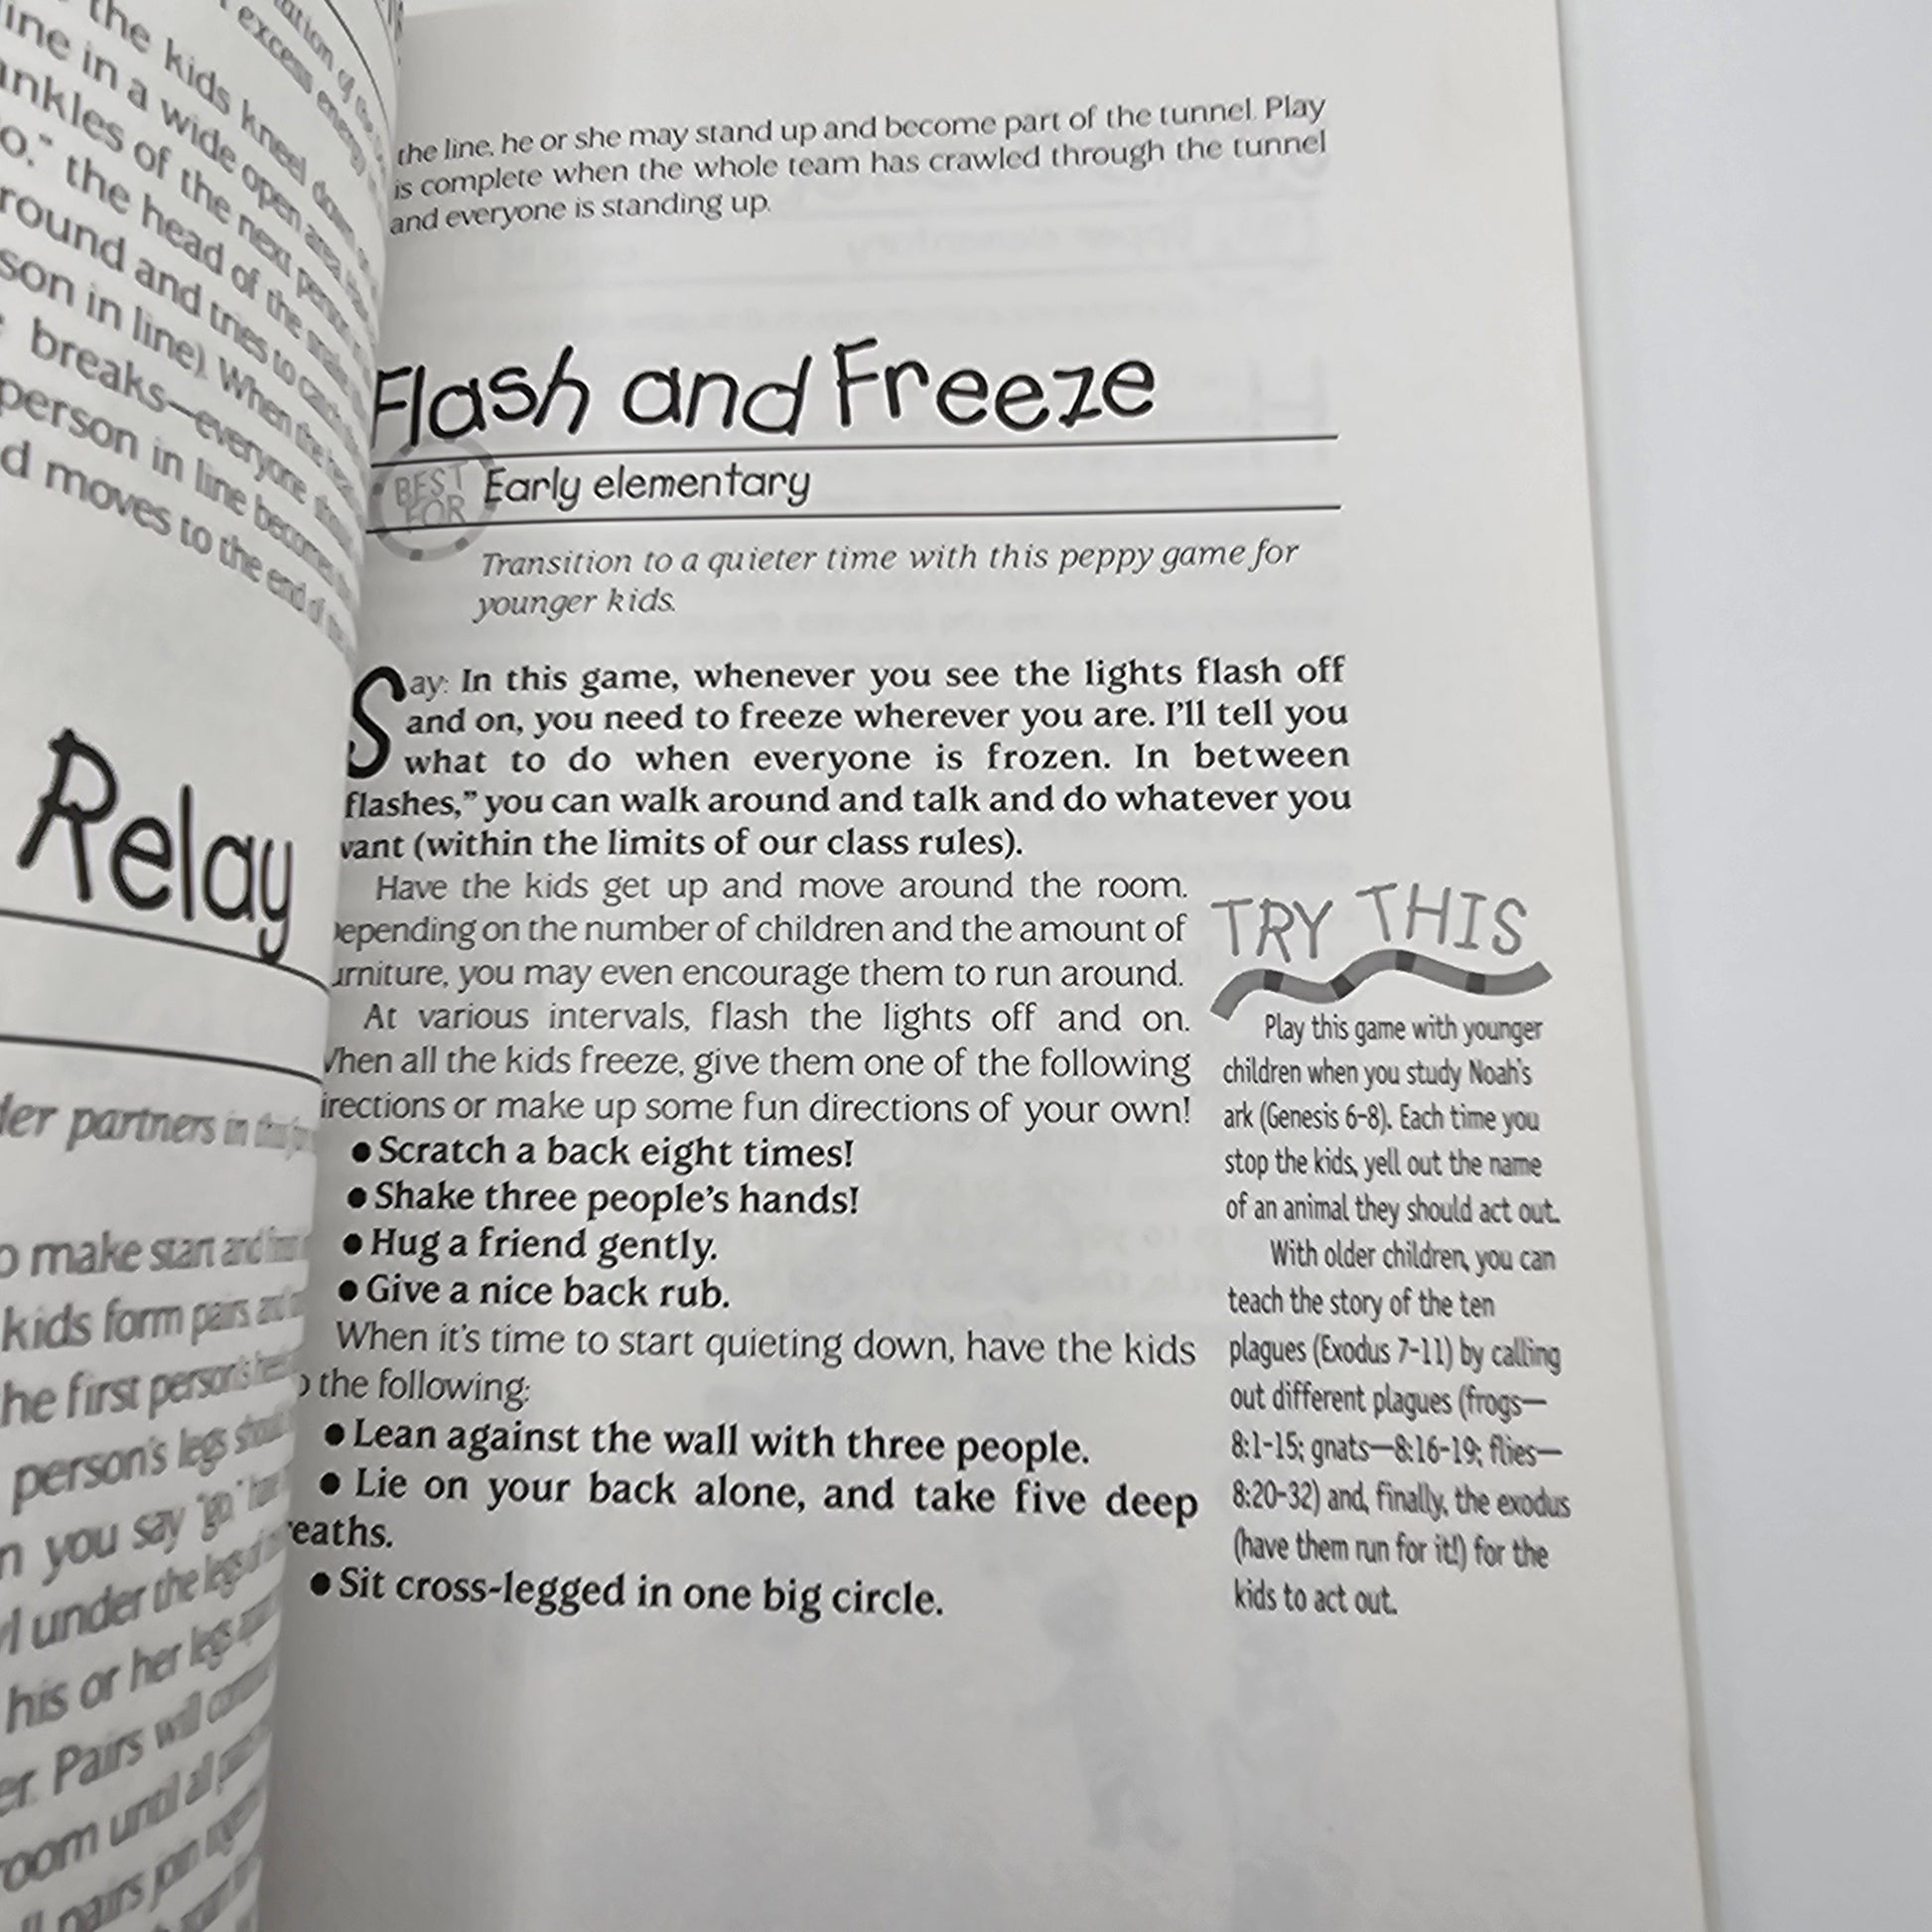 the kids kneel down
line in a wide open area
ankles of the next person
the head of the
round and tries to catch
son in line). When the
breaks—everyone
person in line becomes
d moves to the end of
Relay
der partners in
o make start and
kids form pairs
he first person's
person's legs
n you say "go,"
l under the legs of
his or her legs
er. Pairs will
room until all
pairs join
the line, he or she may stand up and become part of the tunnel. Play
is complete when the whole team has crawled through the tunnel
and everyone is standing up.
Flash and Freeze
BEST FOR Early elementary
Transition to a quieter time with this peppy game for
younger kids.
Say: In this game, whenever you see the lights flash off
and on, you need to freeze wherever you are. I'll tell you
what to do when everyone is frozen. In between
flashes,” you can walk around and talk and do whatever you
vant (within the limits of our class rules).
Have the kids get up and move around the room.
epending on the number of children and the amount of
urniture, you may even encourage them to run around.
At various intervals, flash the lights off and on.
Vhen all the kids freeze, give them one of the following
irections or make up some fun directions of your own!
● Scratch a back eight times!
● Shake three people's hands!
● Hug a friend gently.
● Give a nice back rub.
When it's time to start quieting down, have the kids
o the following:
● Lean against the wall with three people.
● Lie on your back alone, and take five deep
reaths.
● Sit cross-legged in one big circle.
TRY THIS
Play this game with younger
children when you study Noah's
ark (Genesis 6-8). Each time you
stop the kids, yell out the name
of an animal they should act out.
With older children, you can
teach the story of the ten
plagues (Exodus 7-11) by calling
out different plagues (frogs—
8:1-15; gnats—8:16-19; flies—
8:20-32) and, finally, the exodus
(have them run for it!) for the
kids to act out.